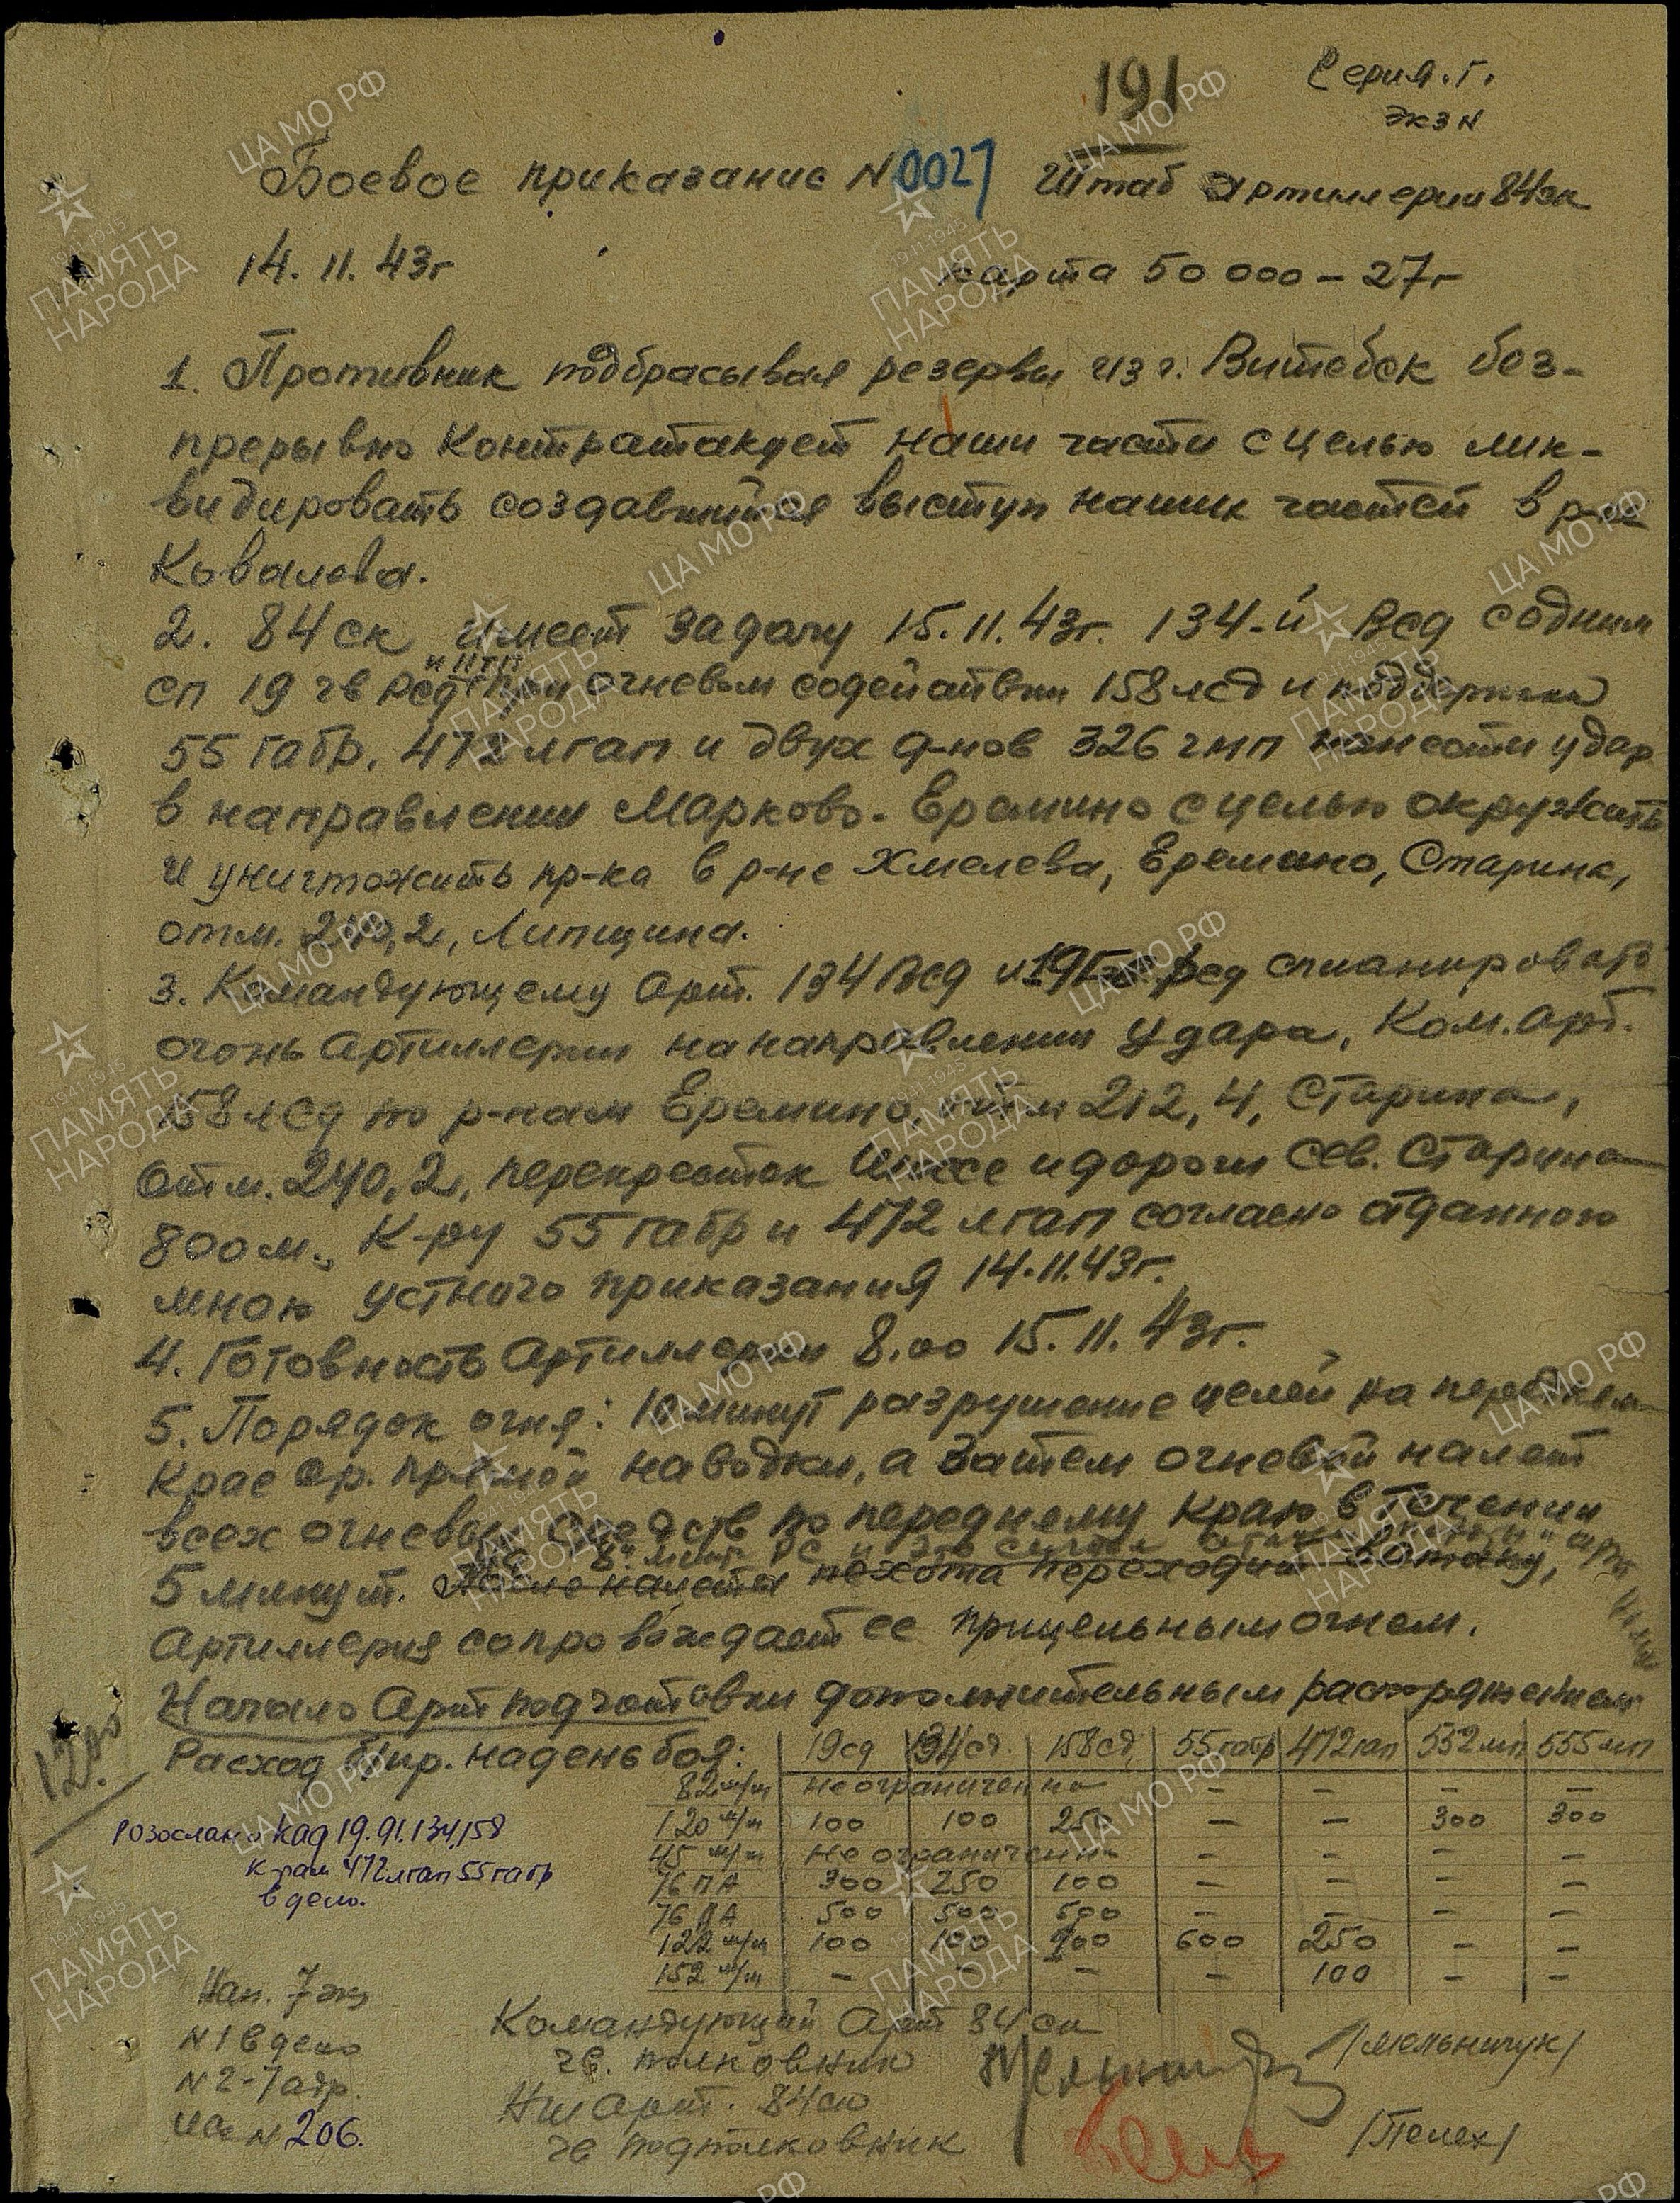 191
Серия. Г.
экз N
Боевое приказание N 0027 Штаб артиллерии 84ск
14. 11. 43г карта 50 000 – 27г
1. Противник подбрасывая резервы из г. Витебск без-
прерывно контратакует наши части с целью лик-
видировать создавшийся выступ наших частей в р-не
Ковалева.
2. 84 ск имеет задачу 15.11.43г. 134-й Рсд с одним
и ПТП
сп 19 гв Рсд при огневом содействии 158 лсд и поддержки
55 габр. 472 лгап и двух д-нов 326 гмп нанести удар
в направлении Марково - Еремино с целью окружить
и уничтожить пр-ка в р-не Хмелева, Еремино, Старинк,
отм. 240,2, Липщина.
3. Командующему арт. 134 Рсд и 19 Гв. Рсд спланировать
огонь артиллерии на направлении удара, Ком. арт.
158 лсд по р-нам Еремино, отм 212,4, Старина,
отм. 240,2, перекресток шоссе и дороги сев. Старина
800 м., К-ру 55 габр и 472 лгап согласно отданного
мною устного приказания 14.11.43г.
4. Готовность артиллерии 8.00 15.11.43г.
5. Порядок огня: 10 минут разрушение целей на переднем
крае ор. прямой наводки, а затем огневой налет
всех огневых средств по переднему краю в течении
5 минут. После налета пехота переходит в атаку,
Артиллерия сопровождает ее прицельным огнем.
Начало Артподготовки дополнительным распоряжением
12.00
Расход б/пр. на день боя: 19сд 134сд. 158сд, 55габр 472гап 552мп 555мп
82 м/м не ограниченно – – – –
120 м/м 100 100 250 – – 300 300
45 м/м не ограниченно – – – –
76 ПА 300 250 100 – – – –
76 ДА 500 500 500 – – – –
122 м/м 100 100 600 250 – –
152 м/м – – – – 100 – –
Розослано Кад 19.91.134,158
к-рам 472лгап 55габр
в дело.
Нап. 7 экз
N 1 в дело
N 2-7 адр.
Исх N 206.
Командующий Арт 84 ск
гв. полковник /Мельничук/
Нш арт. 84ск
гв подполковник /Пелех/
ЦА МО РФ
1941-1945
ПАМЯТЬ
НАРОДА